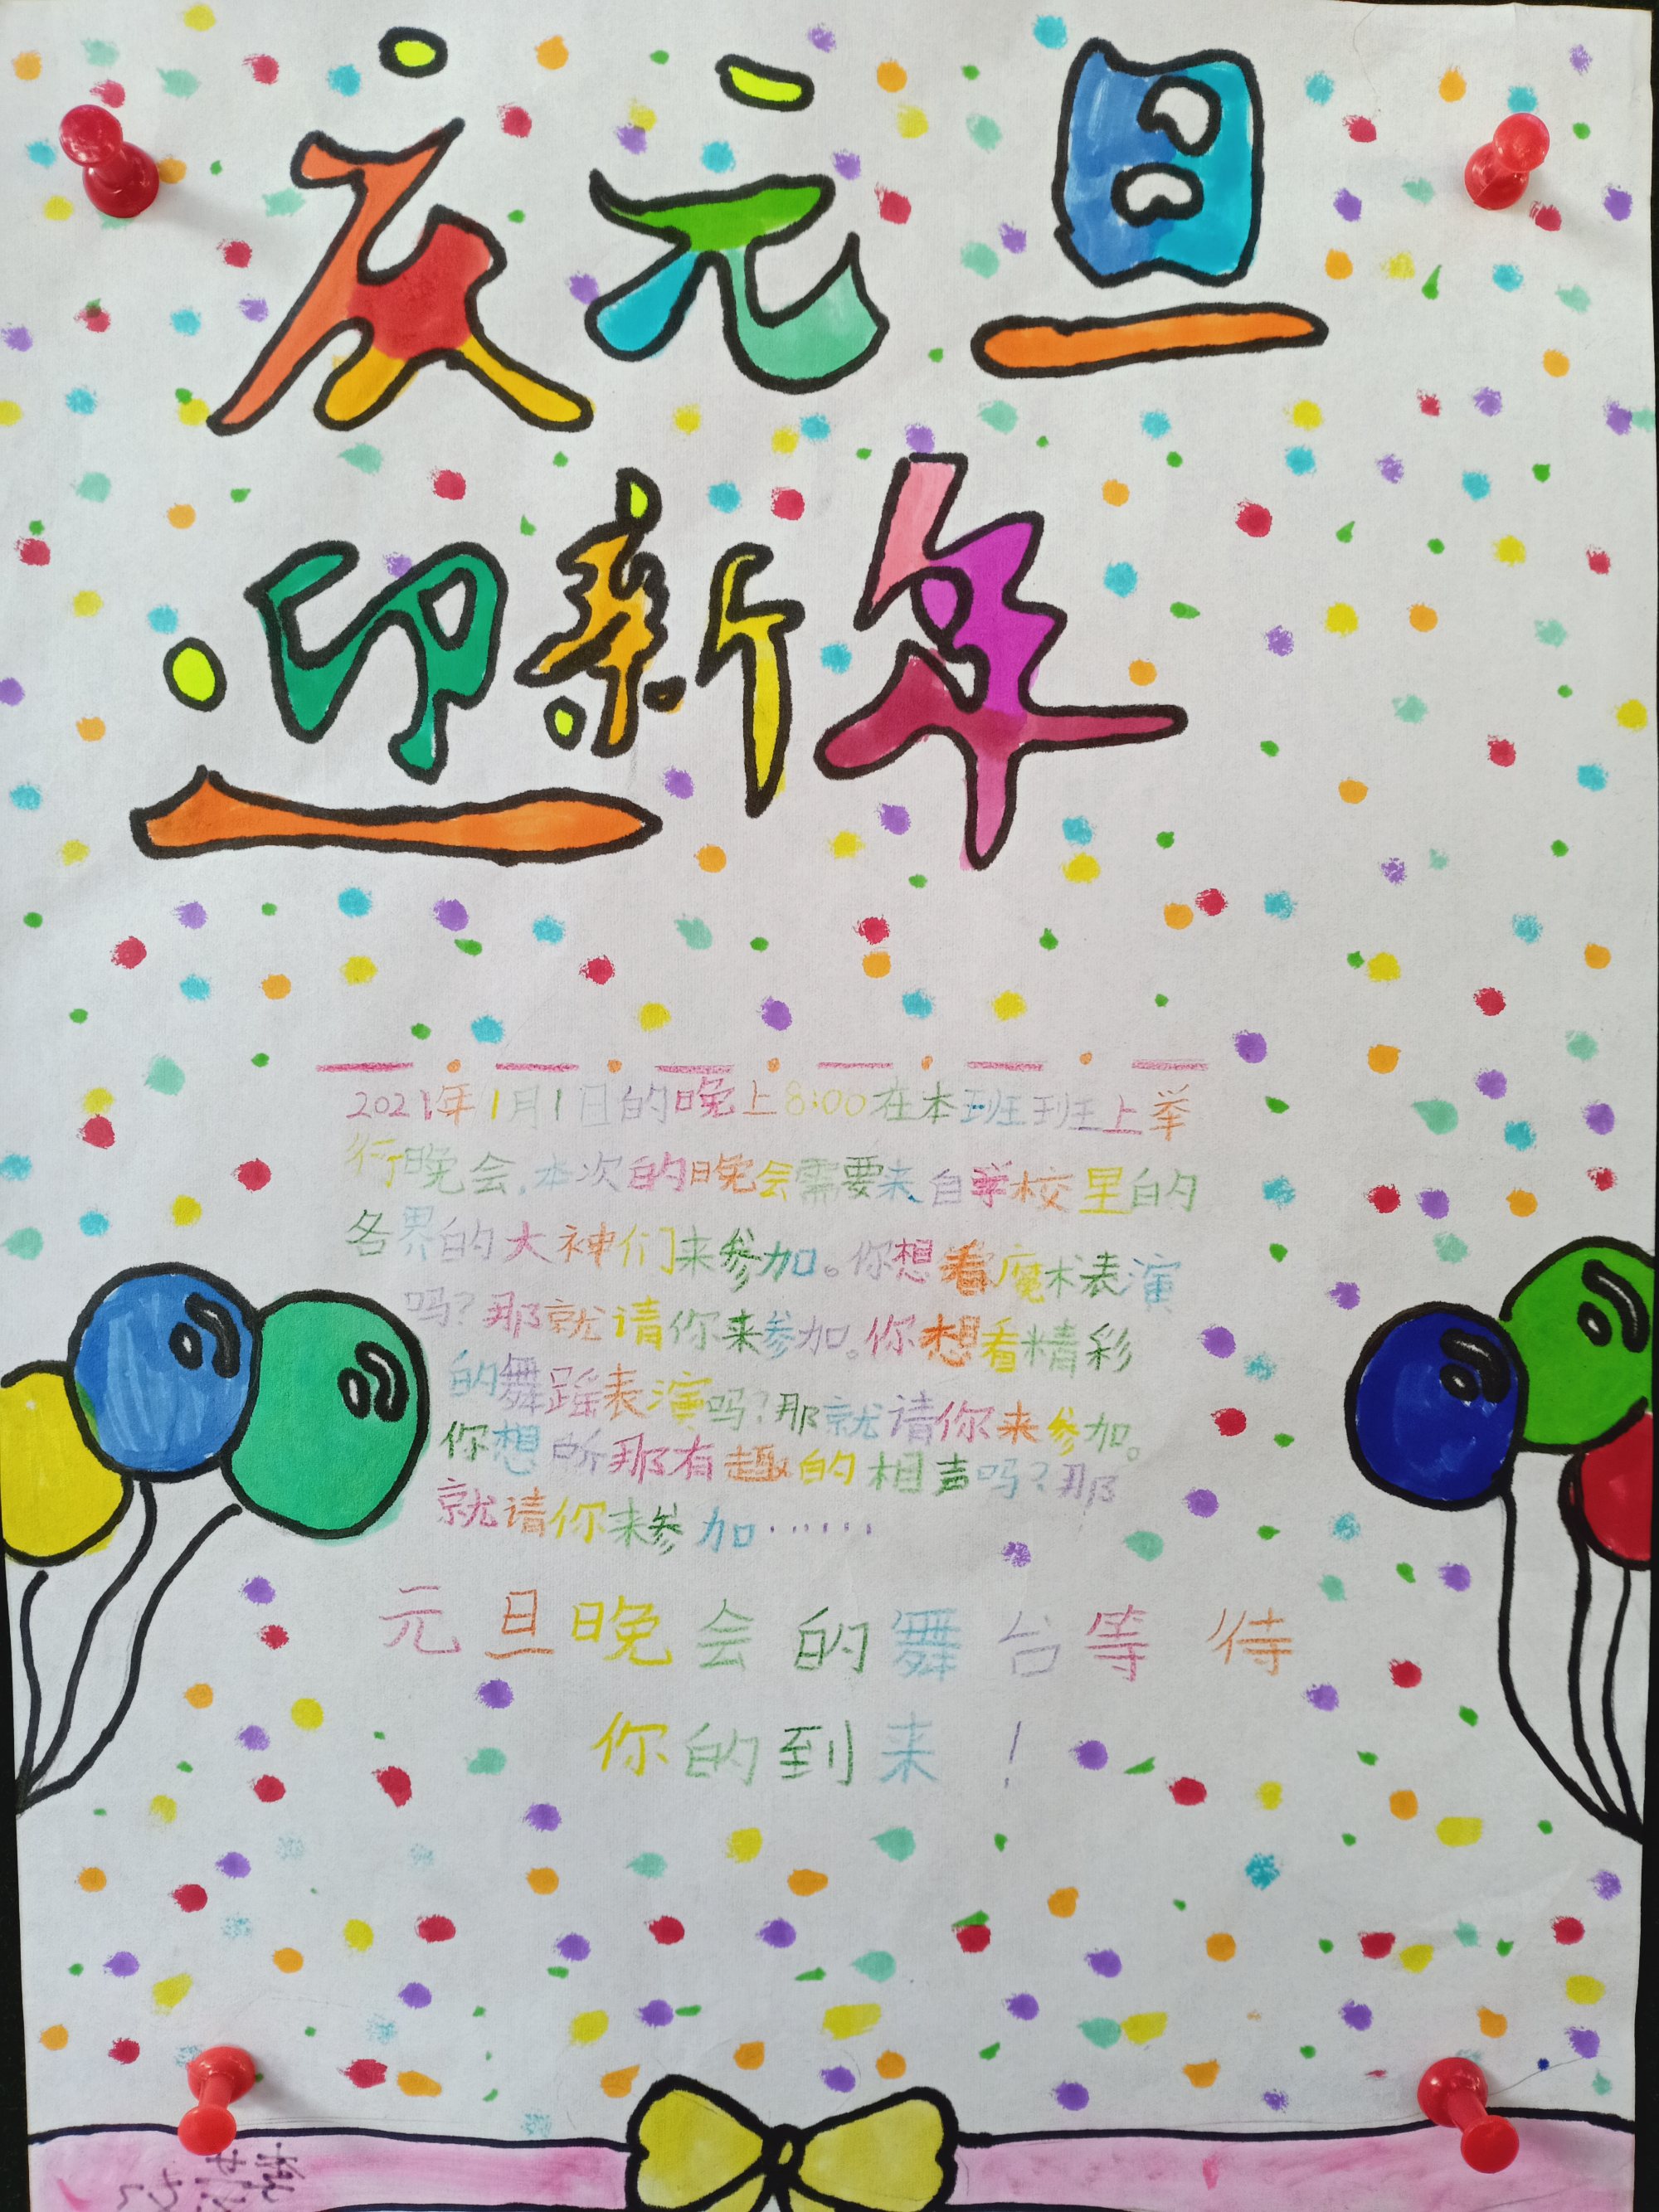 庆元旦
迎新年
2021年1月1日的晚上8:00在本班班上举
行晚会,本次的晚会需要来自学校里的
各界的大神们来参加。你想看魔术表演
吗?那就请你来参加。你想看精彩
的舞蹈表演吗?那就请你来参加。
你想听那有趣的相声吗?那
就请你来参加······
元旦晚会的舞台等待
你的到来!